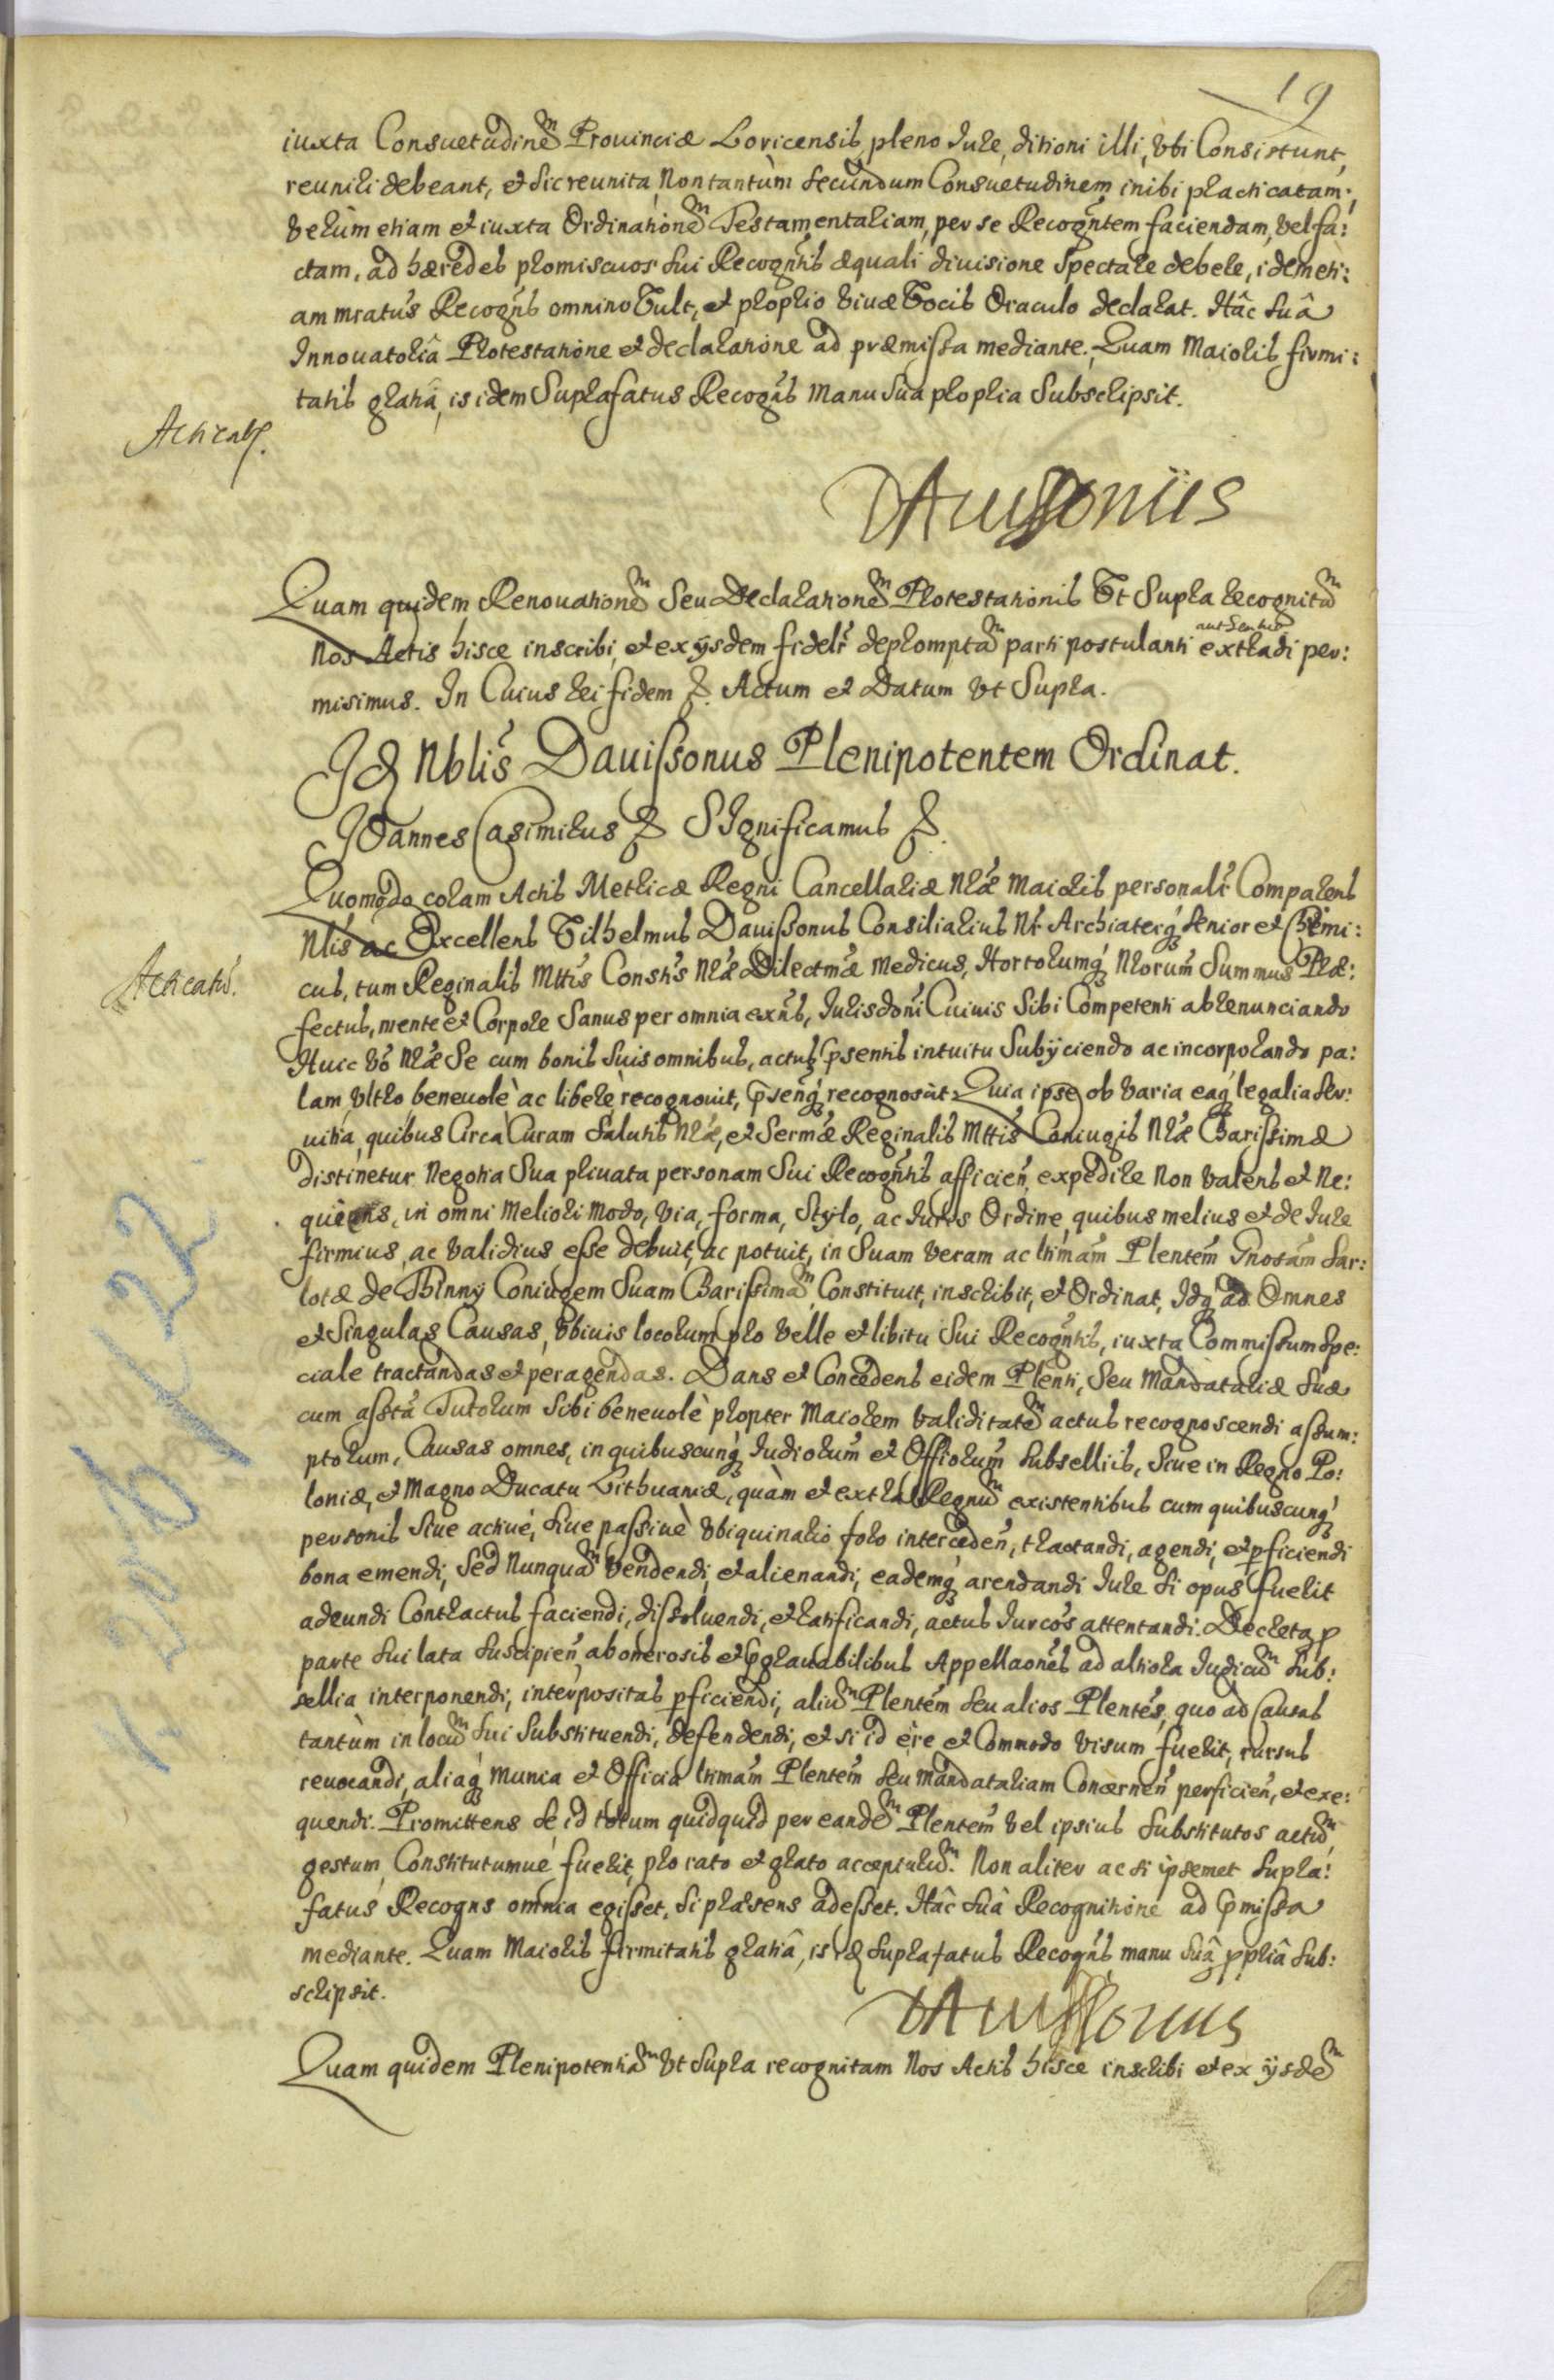 19
iuxta Consuetudinem Prouinciæ Lovicensis, pleno Iure, ditioni illi, vbi Consistunt,
reuniri debeant, et sic reunita, Non tantùm secundum Consuetudinem inibi practicatam;
verùm etiam et iuxta Ordinationem Testamentariam, per se Recogntem faciendam, vel fa:
ctam, ad hæredes promiscuos sui Recogntis æquali diuisione Spectare debere, idem eti:
am mratus Recogns omnino Vult, et proprio viuæ Vocis Oraculo declarat. Hâc suâ
Innouatoriâ Protestatione et declaratione ad præmissa mediante. Quam Maioris firmi:
tatis gratiâ, is idem Suprafatus Recogns Manu Sua propria Subscripsit.
Acticat.
DAuissoniis
Quam quidem Renouationem Seu Declarationem Protestationis Vt Supra recognitam
Nos Actis hisce inscribi, et ex ijsdem fidelr depromptam parti postulanti authentice extradi per:
misimus. In Cuius rei fidem &. Actum et Datum vt Supra.
Id Nblis Dauissonus Plenipotentem Ordinat.
IOannes Casimirus & SIgnificamus &.
Quomodo coram Actis Metricæ Regni Cancellariæ Nræ Maioris personalr Comparens
Nlis ac Excellens Vilhelmus Dauissonus Consiliarius Nr Archiaterq senior et Chÿmi:
Acticatio.
cus, tum Reginalis Mttis Constis Nræ Dilectmæ Medicus, Hortorumq Nrorum Summus Præ:
fectus, mente et Corpore Sanus per omnia exns, Iurisdoni Cuiuis Sibi Competenti abrenunciando
Huic vo Nræ Se cum bonis Suis omnibus, actus psentis intuitu Subijciendo ac incorporando pa:
lam, vltro, beneuolè ac liberè recognouit, psenq recognoscit. Quia ipse ob varia eaq legalia ser:
uitia, quibus Circa Curam Salutis Nræ, et Sermæ Reginalis Mttis Coniugis Nræ Charissimæ
distinetur Negotia Sua priuata personam Sui Recogntis afficien, expedire Non valens et Ne:
quiens, in omni Meliori Modo, via, forma, Stylo, ac Iuris Ordine, quibus melius et de Iure
firmius, ac validius esse debuit, ac potuit, in Suam veram ac ltimam Plentem Gnosam Sar:
lotæ de Thinny Coniugem Suam Charissimam Constituit, inscribit, et Ordinat, Idq ad Omnes
et Singulas Causas, vbiuis locorum pro velle et libitu Sui Recogntis, iuxta Commissum Spe:
ciale tractandas et peragendas. Dans et Concedens eidem Plenti, Seu Mandatariæ Suæ
cum assta Tutorum Sibi beneuolè propter Maiorem validitatem actus recognoscendi assum:
ptorum, Causas omnes, in quibuscunq Iudiorum et Offiorum Subselliis, Siue in Regno Po:
loniæ, et Magno Ducatu Lithuaniæ, quàm et extra Regnum existentibus cum quibuscunq
personis siue actiué, siue passiuè vbiquinario foro interceden, tractandi, agendi, et pficiendi
bona emendi, Sed Nunquam vendendi, et alienandi, eademq arendandi Iure si opus fuerit
adeundi Contractus faciendi, dissoluendi, et ratificandi, actus Iurcos attentandi. Decreta p
parte Sui lata Suscipien, ab onerosis et pgrauabilibus Appellaones ad altiora Iudicum Sub:
sellia interponendi, interpositas pficiendi, alium Plentem seu alios Plentes, quo ad Causas
tantùm in locum Sui Substituendi, defendendi, et si id ère et Commodo visum fuerit, rursus
reuocandi, aliaq Munia et Officia ltimam Plentem seu Mandatariam Concernen perficien, et exe:
quendi. Promittens se id totum quidquid per eandem Plentem vel ipsius Substitutos actum
gestum, Constitutumue fuerit, pro rato et grato accepturum. Non aliter ac si ipsemet Supra:
fatus Recogns omnia egisset, si præsens adesset. Hâc suâ Recognitione ad pmissa
mediante. Quam Maioris firmitatis gratiâ, is id Suprafatus Recogns manu suâ ppriâ Sub:
scripsit.
DAuissonus
Quam quidem Plenipotentiam vt Supra recognitam Nos Actis hisce inscribi et ex ijsdem